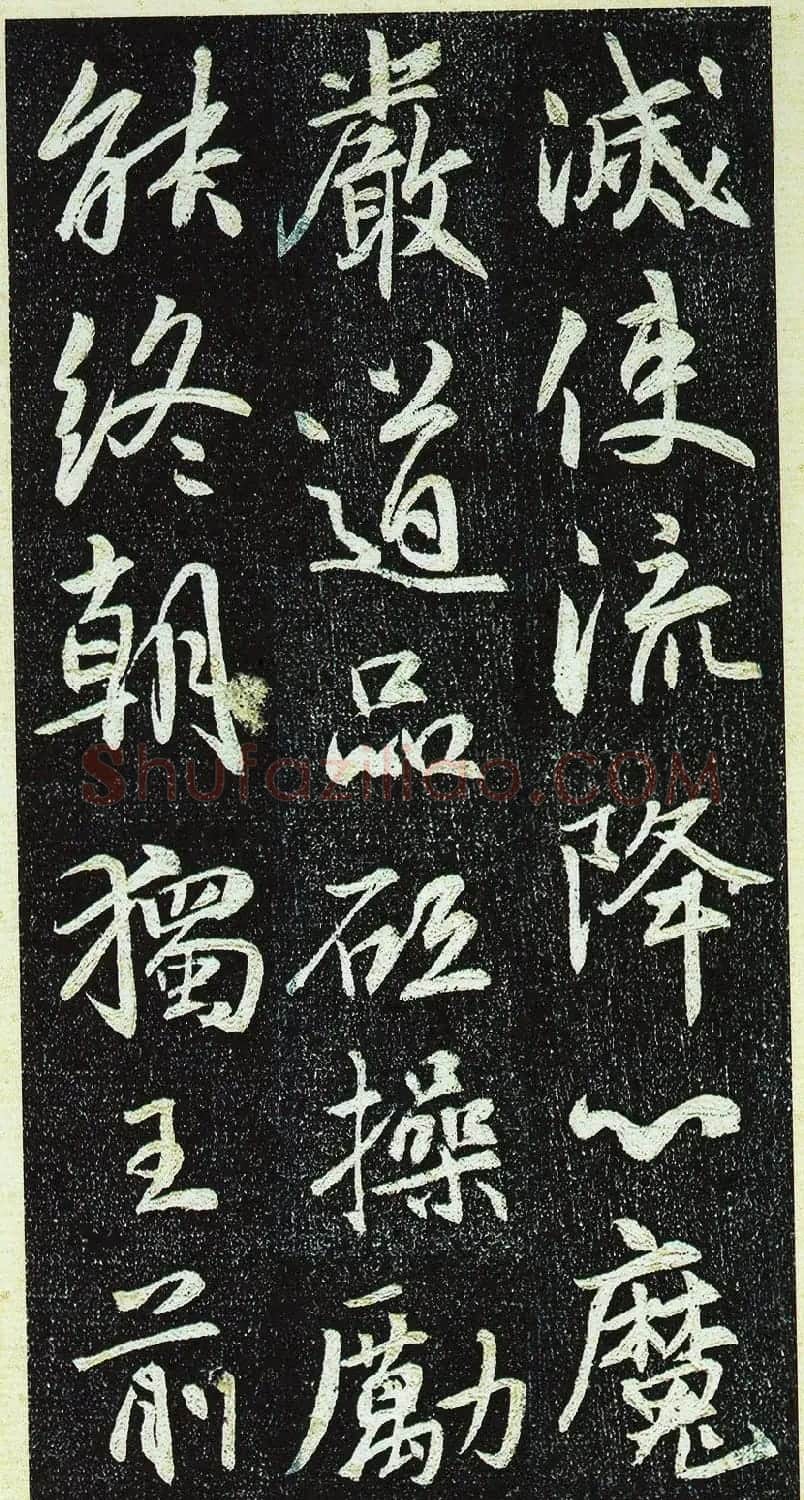 滅使流降心魔
嚴道品砥操勵
能終朝獨王前
Shufaziliao.COM